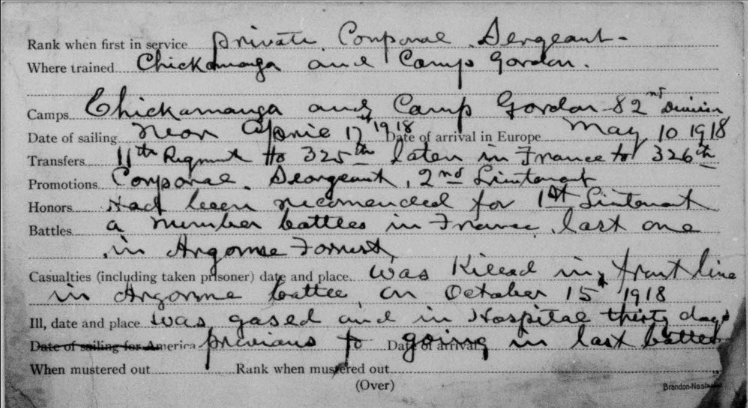 Rank when first in service private Corporal Sergeant-
Where trained Chickamauga and Camp Gordon.
Camps Chickamauga and Camp Gordon 82nd Division
Date of sailing near April 17th 1918 Date of arrival in Europe May 10 1918
Transfers 11th Regiment to 325th later in France to 326th
Promotions Corporal. Seargeant, 2nd Lieutenant
Honors Had been recomended for 1st Lieutenant
Battles a number battles in France, last one
in Argonne Forrest
Casualties (including taken prisoner) date and place was Killed in front line
in Argonne battle on October 15th 1918
Ill, date and place was gased and in Hospital thirty days
Date of sailing for America previous to Date of arrival going in last battle
When mustered out Rank when mustered out
(Over)